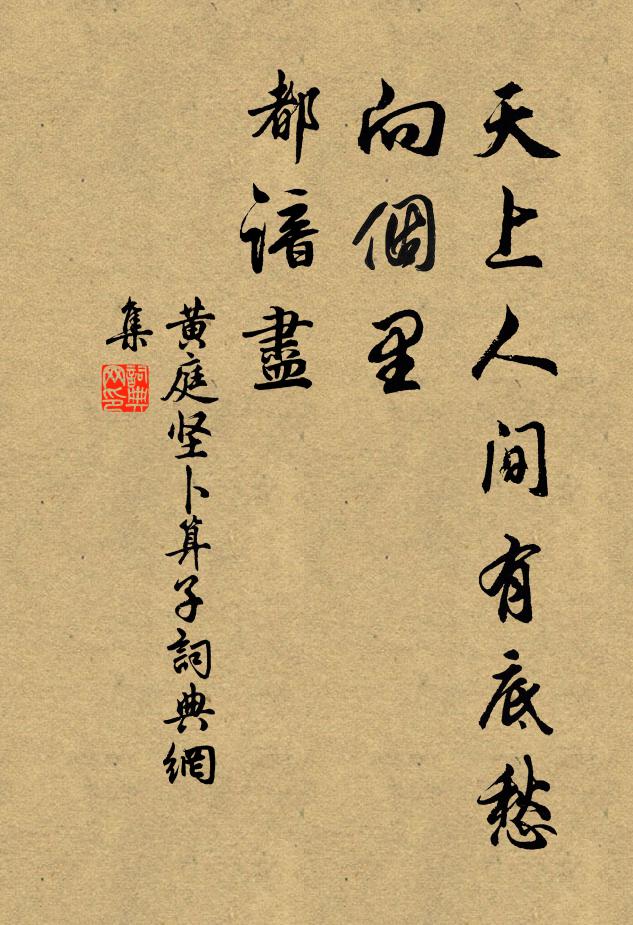 天上人间有底愁
向個里
都谙盡
黄庭坚卜算子詞典網
集
詞典网印